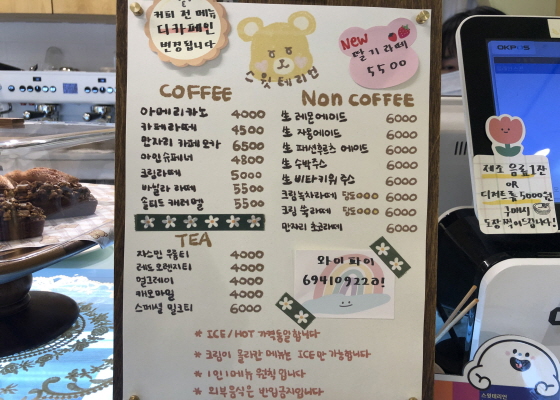 커피 전 메뉴
디카페인
변경됩니다
스윗테리언
New
딸기라떼
5500
COFFEE
아메리카노 4000
카페라떼 4500
만자리 카페모카 6500
아인슈페너 4800
크림라떼 5000
바닐라 라떼 5500
솔티드 캐러멜 5500
TEA
자스민 푸를티 4000
레드오렌지티 4000
얼그레이 4000
캐모마일 4000
스페셜 밀크티 6000
Non COFFEE
生 레몬에이드 6000
生 자몽에이드 6000
生 패션후르츠 에이드 6000
生 수박주스 6000
生 비타키위주스 6000
크림녹차라떼 6000
크림 쑥라떼 6000
만자리 초코라떼 6000
와이파이
694109220!
* ICE/HOT 가격동일합니다
* 크림이 올라간 메뉴는 ICE만 가능합니다
* 1인 1메뉴 원칙입니다
* 외부음식은 반입금지입니다
OKPOS
제조 음료 1잔
OR
디저트류 5000원
구매시
도장 찍어드립니다!
스윗테리언